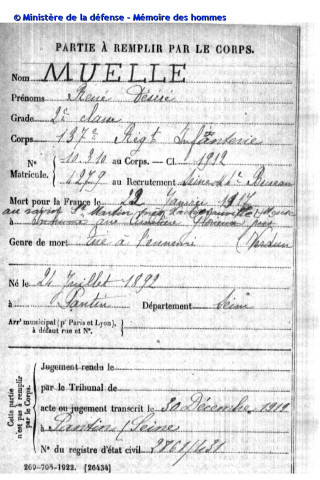 © Ministère de la défense - Mémoire des hommes
PARTIE À REMPLIR PAR LE CORPS.
Nom MUELLE
Prénoms René Désiré
Grade 2e classe
Corps 137e Régt Infanterie
N° 10.910 au Corps. — Cl. 1912
Matricule. 1279 au Recrutement Seine 4e Bureau
Mort pour la France le 22 Janvier 1917
au ravin St Martin
à
Genre de mort tué à l'ennemi (Verdun
Né le 24 Juillet 1892
à Pantin Département Seine
Arrt municipal (pr Paris et Lyon),
à défaut rue et N°.
Cette partie
n'est pas à remplir
par le Corps.
Jugement rendu le
par le Tribunal de
acte ou jugement transcrit le 30 Décembre 1919
à Pantin (Seine
N° du registre d'état civil 2761/431
269-708-1922. [26434]